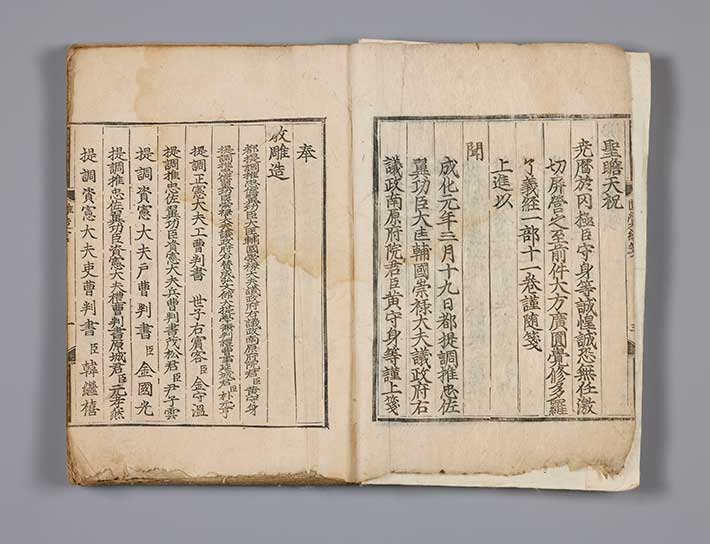 聖瞻天祝
堯曆於罔極臣守身等誠惶誠恐無任激
切屏營之至前件大方廣圓覺修多羅
了義經一部十一卷謹隨箋
上進以
聞
成化元年三月十九日都提調推忠佐
翼功臣大匡輔國崇禄大夫議政府右
議政南原府院君臣黃守身等謹上箋
奉
敎雕造
都提調推忠佐翼功臣大匡輔國崇禄大夫議政府右議政南原府院君臣黃守身
提調推忠佐翼功臣崇禄大夫議政府右贊成 大提學 判禮曹事延城君臣朴元亨
提調正憲大夫工曹判書 世子右賓客臣金守溫
提調推忠佐翼功臣資憲大夫兵曹判書茂松君臣尹子雲
提調資憲大夫戶曹判書臣金國光
提調推忠佐翼功臣資憲大夫禮曹判書原城君臣元孝然
提調資憲大夫吏曹判書臣韓繼禧